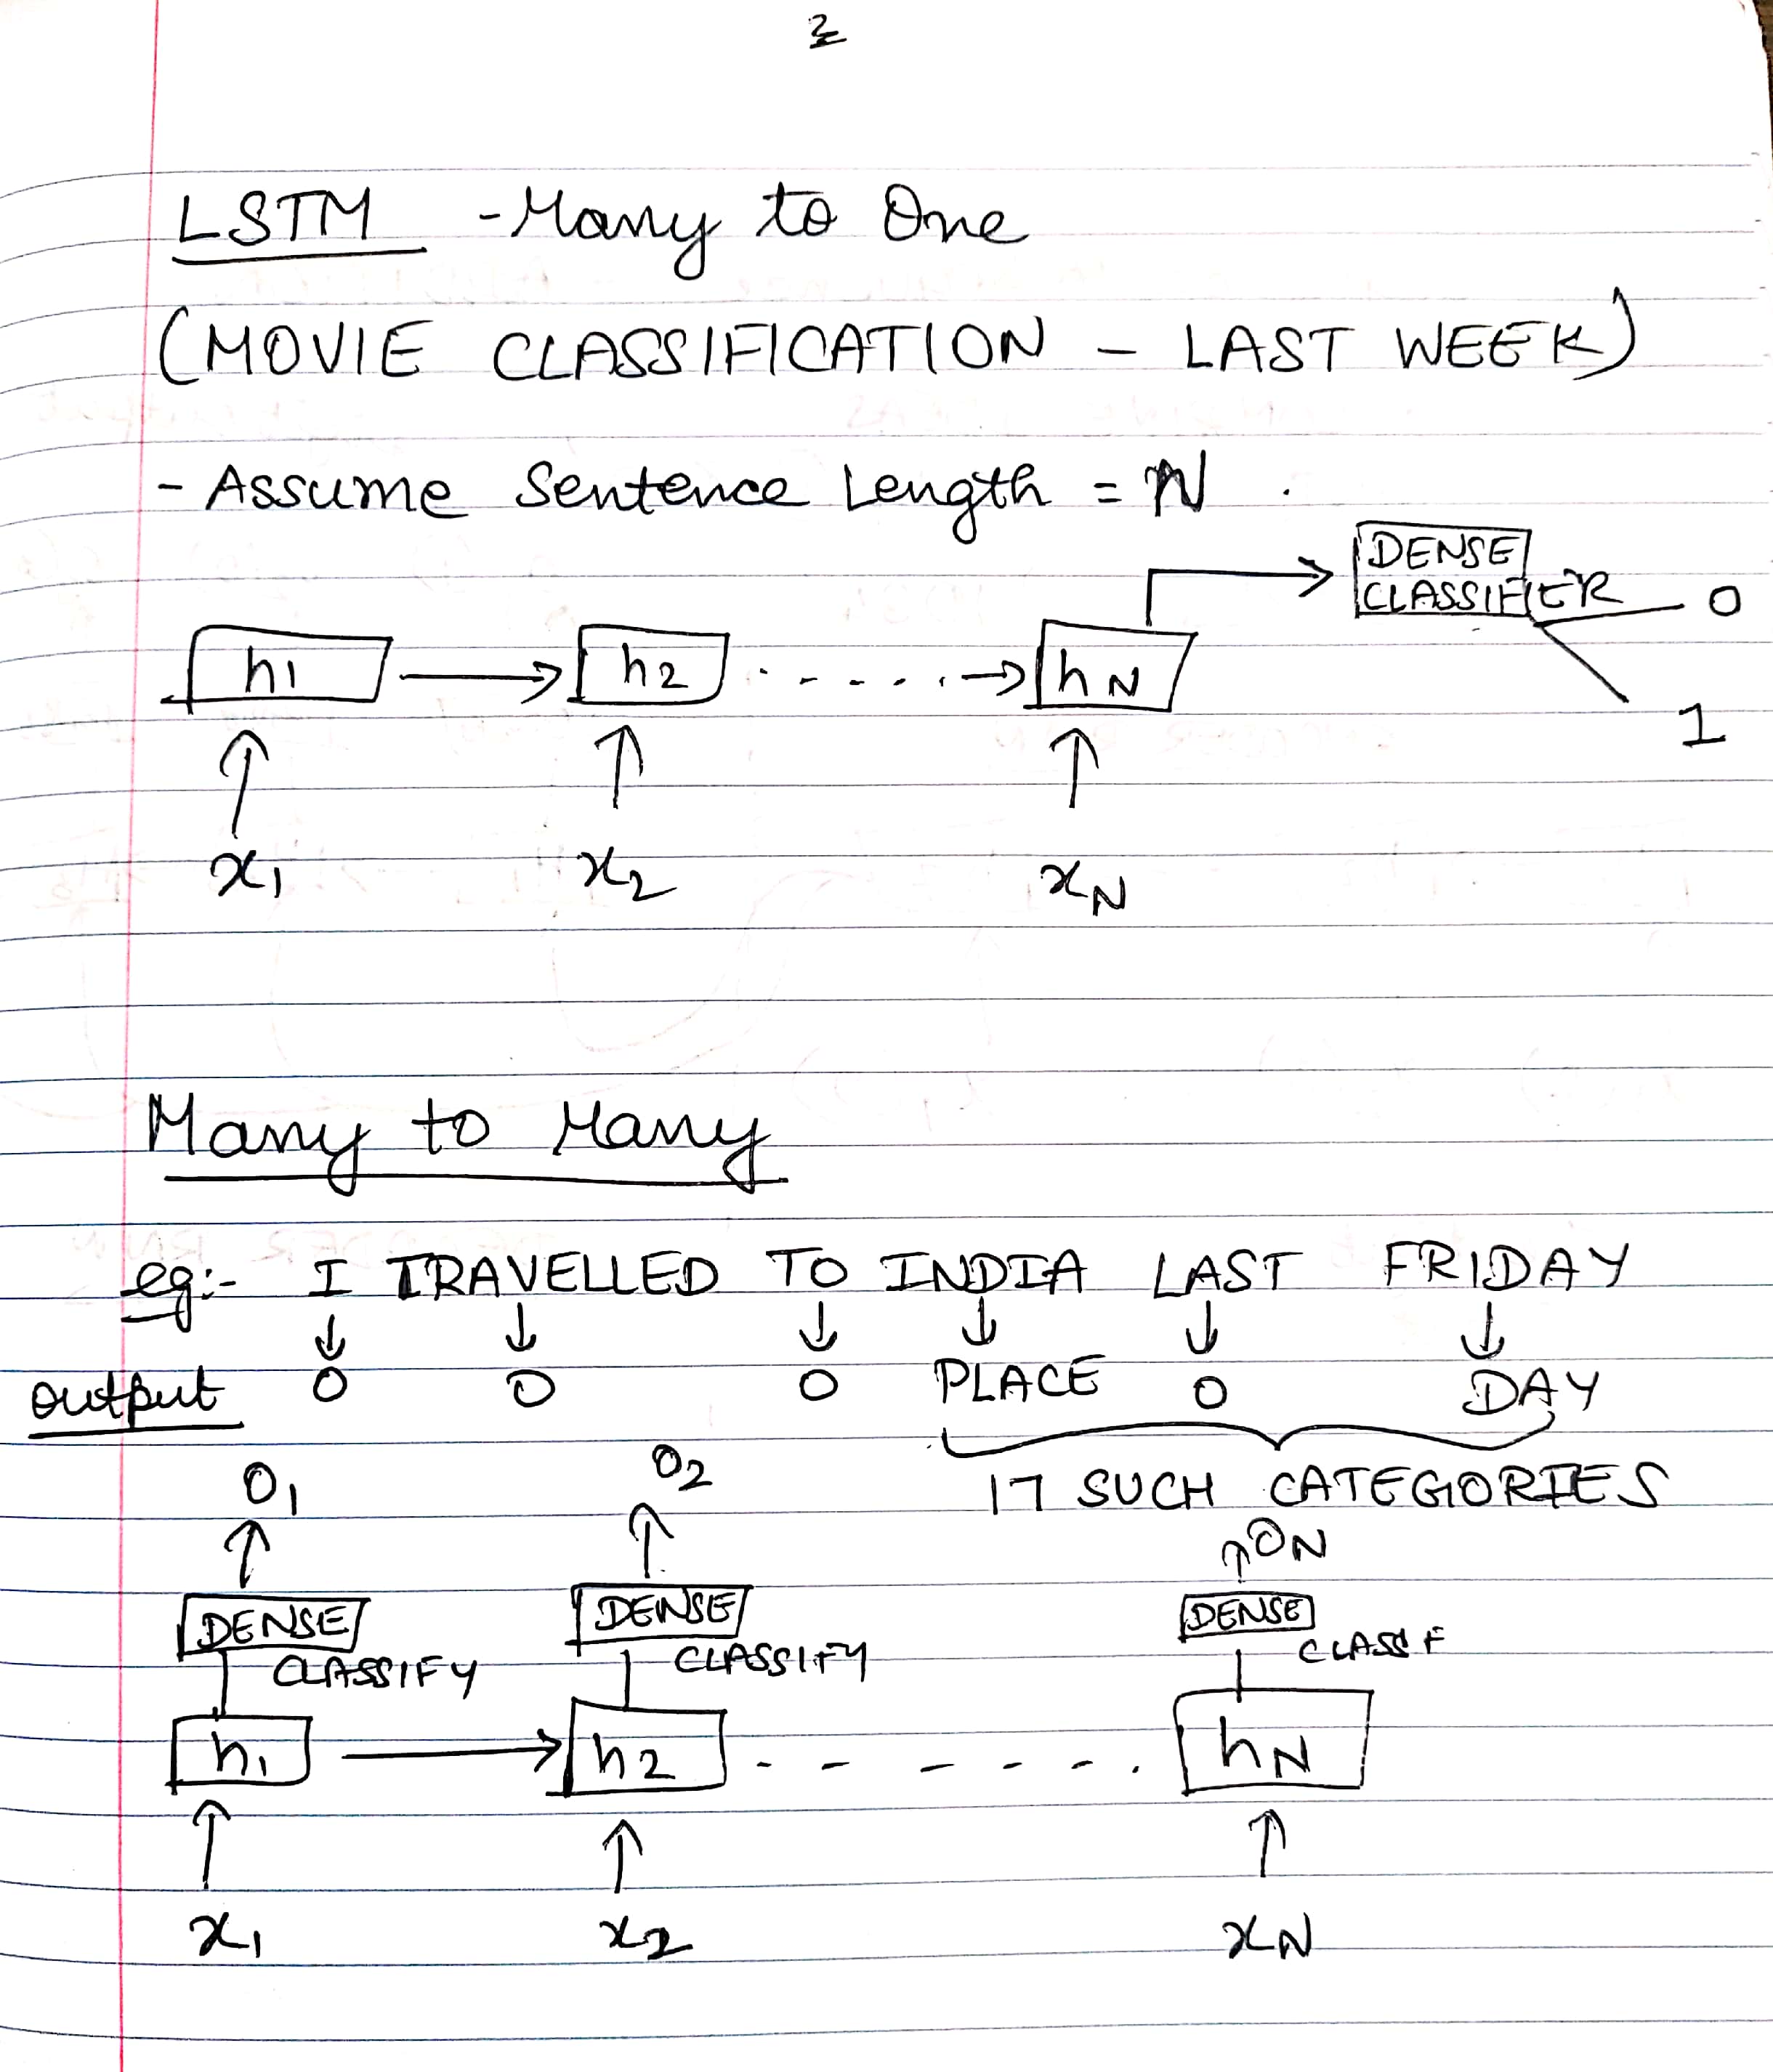 2
LSTM - Many to One
(MOVIE CLASSIFICATION - LAST WEEK)
- Assume Sentence Length = N .
DENSE
CLASSIFIER 0
h1 h2 hN
1
x1 x2 xN
Many to Many
eg:- I TRAVELLED TO INDIA LAST FRIDAY
output O O O PLACE O DAY
O1 O2 17 SUCH CATEGORIES
ON
DENSE DENSE DENSE
CLASSIFY CLASSIFY CLASSF
h1 h2 hN
x1 x2 xN